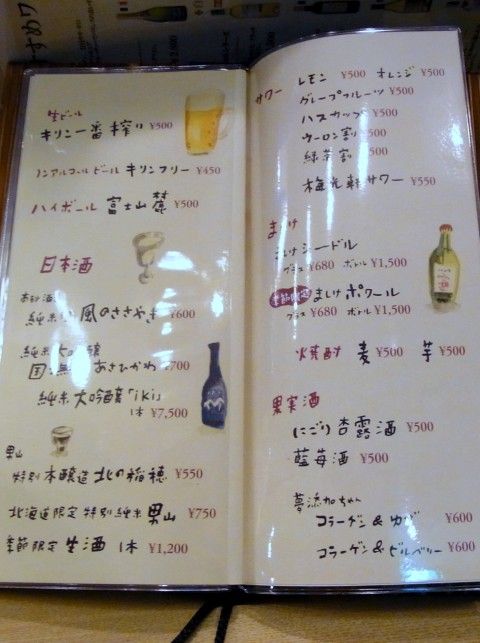 生ビール
キリン一番搾り ¥500
ノンアルコールビール キリンフリー ¥450
ハイボール 富士山麓 ¥500
日本酒
純米 風のささやき ¥600
あさひかわ ¥700
純米大吟醸「iki」
1本 ¥7,500
男山
特別本醸造 北の稲穂 ¥550
北海道限定 特別純米 男山 ¥750
季節限定 生酒 1本 ¥1,200
サワー レモン ¥500 オレンジ ¥500
グレープフルーツ ¥500
ハスカップ ¥500
ウーロン割 ¥500
緑茶割 500
梅光軒サワー ¥550
ましけ
ましけシードル
グラス ¥680 ボトル ¥1,500
季節限定 ましけポワール
グラス ¥680 ボトル ¥1,500
焼酎 麦 ¥500 芋 ¥500
果実酒
にごり杏露酒 ¥500
藍苺酒 ¥500
夢添加ちゃん
コラーゲン & ゆず ¥600
コラーゲン & ビルベリー ¥600